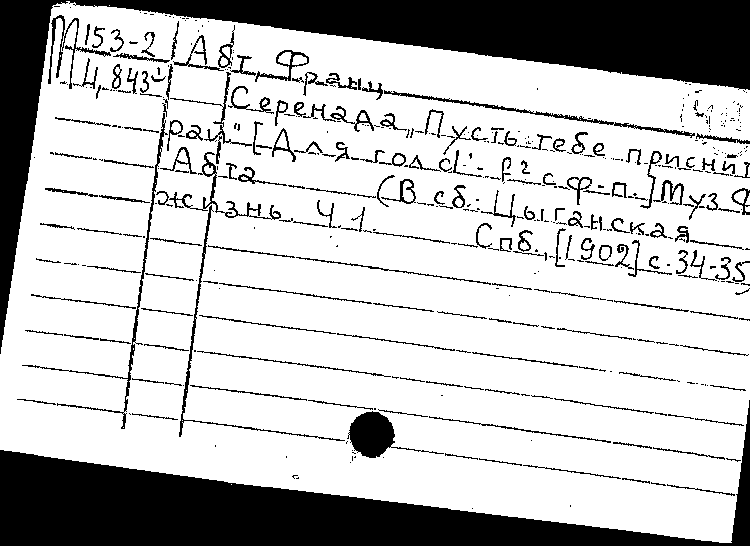 М 153-2 Абт, Франц
4,843
Серенада „Пусть тебе приснит
рай" [Для голd'-f² с ф-п.] Муз Ф
Абта (В сб.: Цыганская
жизнь. Ч 1. Спб., [1902] с. 34-35